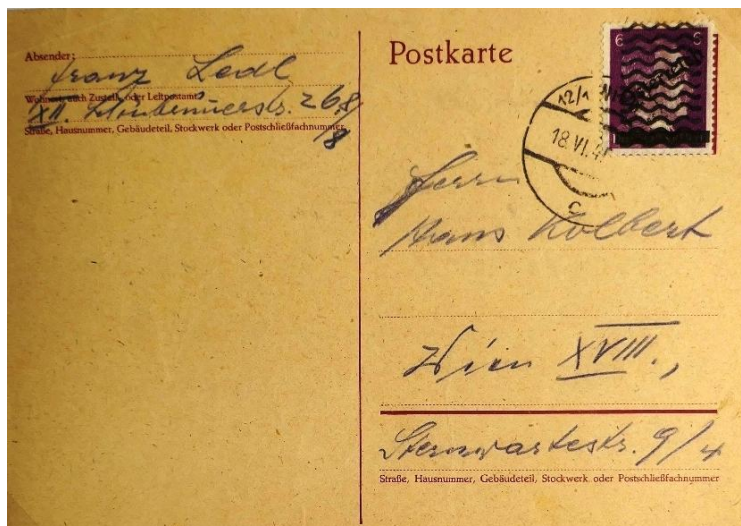 Absender:
Franz Ledl
Wohnort, auch Zustell- oder Leitpostamt
XII. 268/
Straße, Hausnummer, Gebäudeteil, Stockwerk oder Postschließfachnummer
8
Postkarte
6 6
Österreich
12/1
18.VI.4
C
Herrn
Hans Kolbert
Wien XVIII.,
Sternwartestr. 9/4
Straße, Hausnummer, Gebäudeteil, Stockwerk oder Postschließfachnummer